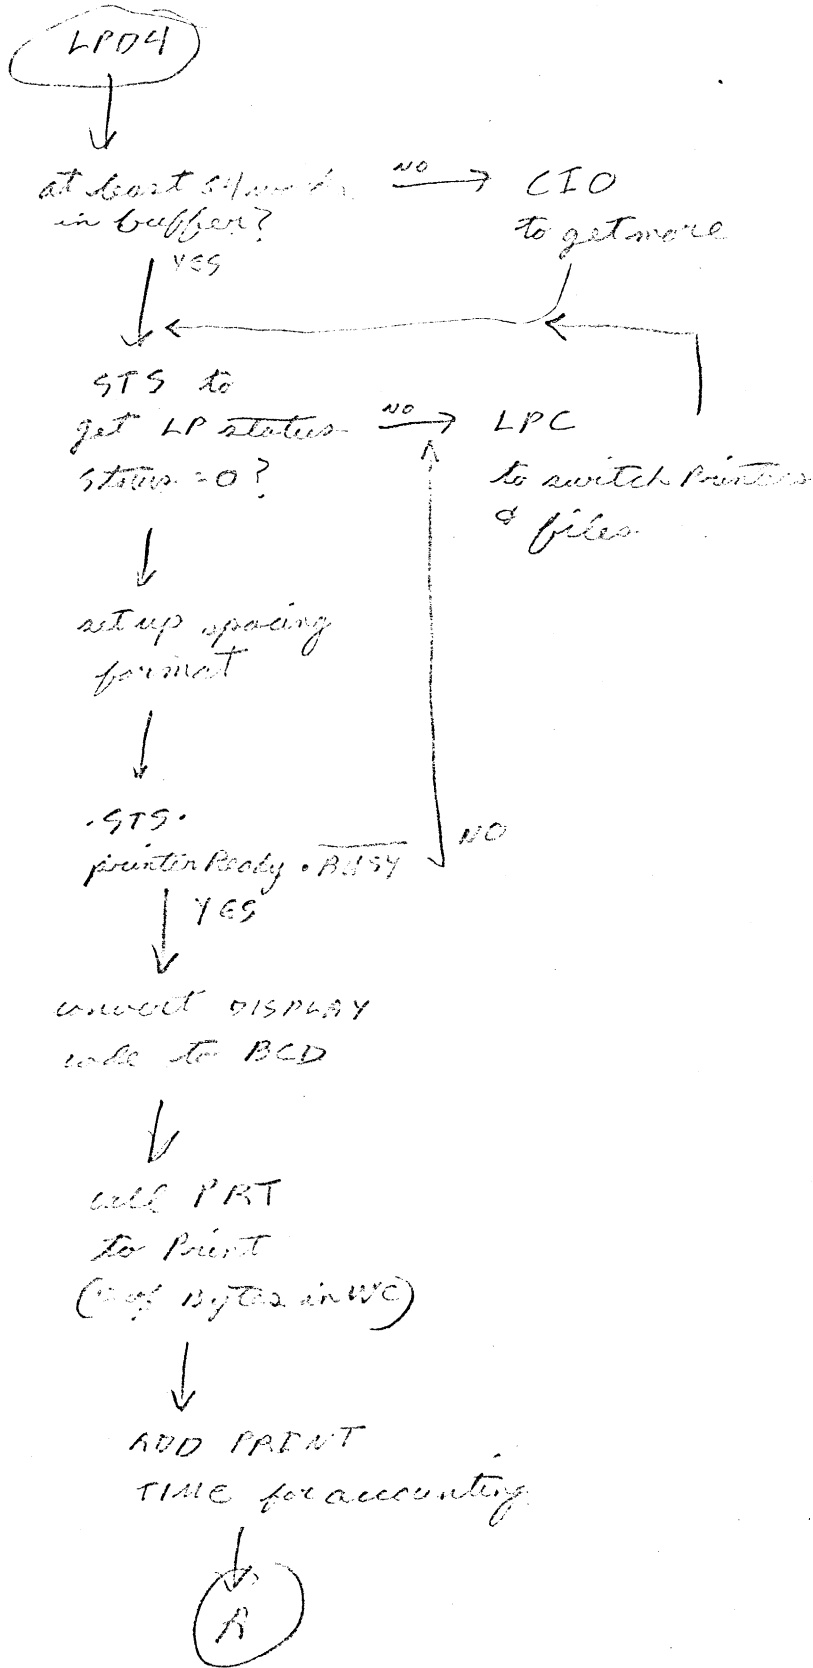 LPD4
at least 54 words
in buffer?
NO
CIO
to get more
YES
STS to
get LP status
status = 0?
NO
LPC
to switch Printers
& files
set up spacing
format
.STS.
printer Ready . BUSY
NO
YES
convert DISPLAY
code to BCD
call PRT
to Print
(# of Bytes in WC)
ADD PRINT
TIME for accounting
A